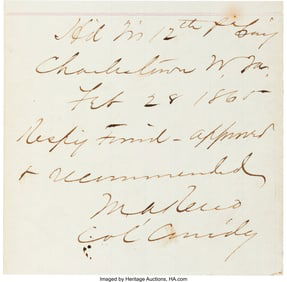 Hd Qrs 12th Pa Cav
Charlestown W. Va.
Feb 28 1865
Respy Forwd - approved
& recommended
M A Reno
Col Comdg
Imaged by Heritage Auctions, HA.com